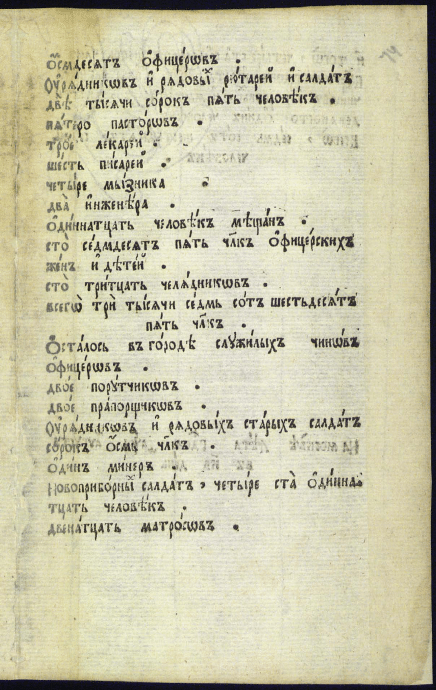 ѻ҆смдесѧтъ ѻ҆фицерѡвъ .
ѹ҆рѧдникѡвъ и҆ рѧдовы́й рє́итарей и҆ салда́тъ
двѐ ты́сѧчи со́рокъ пѧ́ть человѣ́къ .
пѧ́теро пасторѡвъ .
тро́е лекаре́й .
ше́сть пи́сарей .
четы́ре мы́зника .
два̀ и҆нжене́ра .
ѻ҆ди́ннатцать человѣ́къ мѣща́нъ .
сто̀ се́дмдесѧтъ пѧ́ть чл҃къ ѻ҆фице́рскихъ
же́нъ и҆ дѣте́й .
сто̀ три́тцать челѧ́дникѡвъ .
всегѡ̀ трѝ ты́сѧчи се́дмь со́тъ шестьдесѧ́тъ
пѧ́ть чл҃къ .
Ѻ҆ста́лось въ го́родѣ служи́лыхъ чино́въ
ѻ҆фице́рѡвъ .
дво́е пору́тчикѡвъ .
дво́е пра́порщикѡвъ .
ѹ҆рѧ́дникѡвъ и҆ рѧдовы́хъ ста́рыхъ салда́тъ
со́рокъ ѻ҆́смь чл҃къ .
ѻ҆ди́нъ мине́ръ .
новоприбо́рны́й салда́тъ , четы́ре ста̀ ѻ҆ди́нна
тцать человѣ́къ .
двена́тцать матро́сѡвъ .